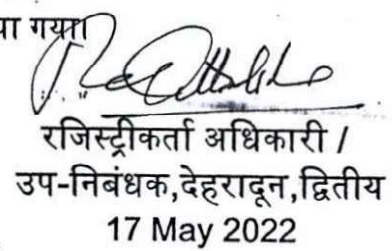 गया।
रजिस्ट्रीकर्ता अधिकारी /
उप-निबंधक,देहरादून,द्वितीय
17 May 2022